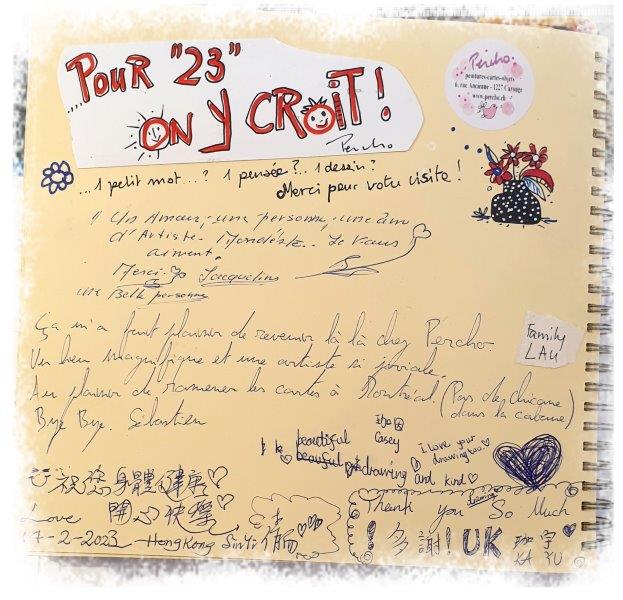 ....POUR "23"
ON Y CROIT !
Percho
Percho.
peintures-cartes-objets
6, rue Ancienne - 1227 Carouge
www.percho.ch
...1 petit mot...? 1 pensée?.. 1 dessin?
Merci pour votre visite !
Un Amour, une personne, une âme
d'Artiste. Je vous
aiment.
Merci. Jacqueline
une Belle personne
Ça m'a fait plaisir de revenir là là chez Percho.
Un lieu magnifique et une artiste si joviale.
Au plaisir de ramener les cartes à Montréal. (Pays des chicane
dans la cabane)
Bye Bye. Sébastien
Family
LAU
beautiful
drawing and kind
Casey
i love your
drawing too.
祝您身體健康
Love 開心快樂
14-2-2023 - HongKong
Thank you So Much
! 多謝! UK